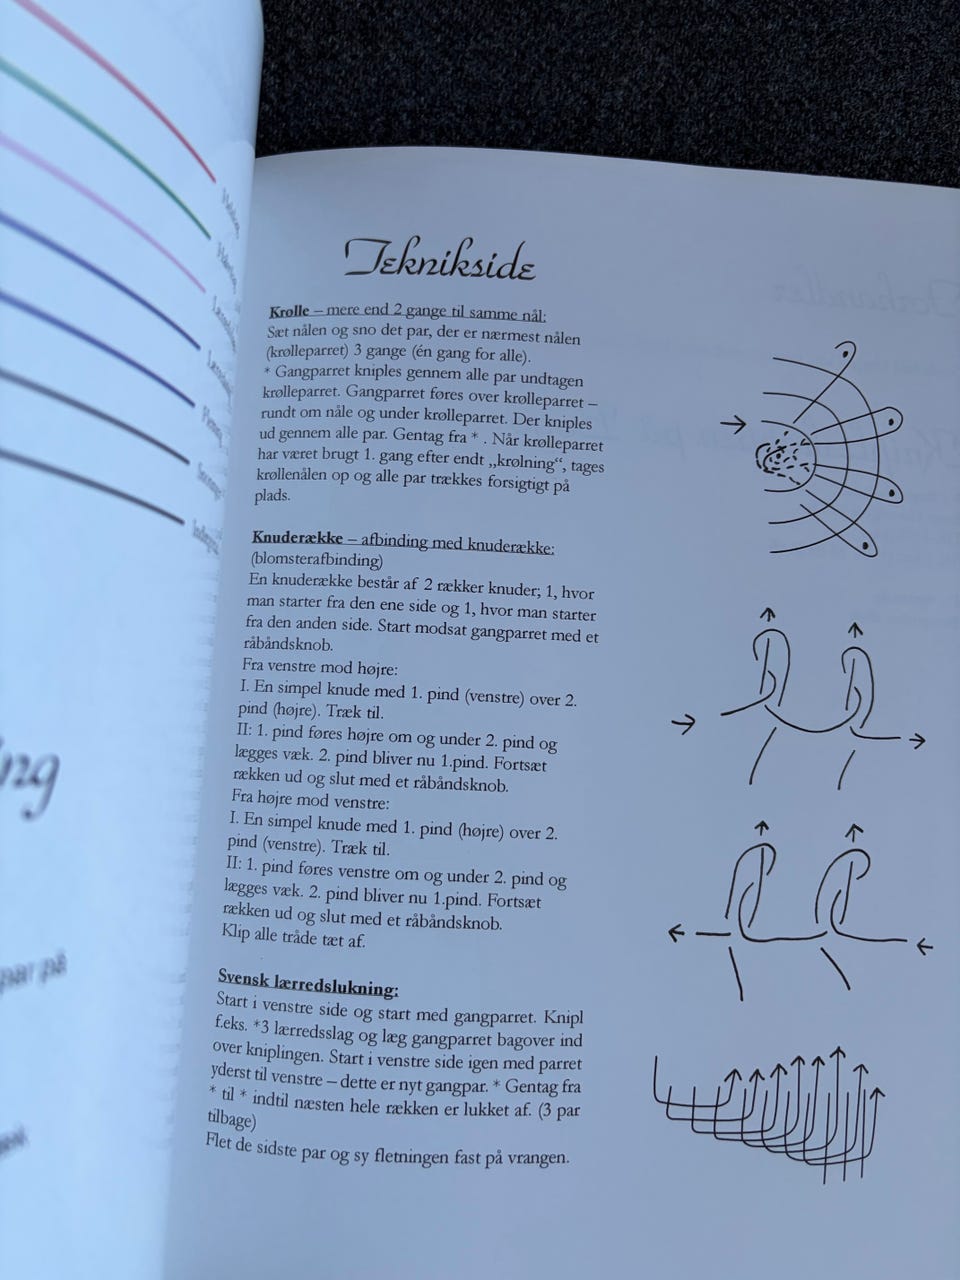 ng
par på
Teknikside
Krølle – mere end 2 gange til samme nål:
Sæt nålen og sno det par, der er nærmest nålen
(krølleparret) 3 gange (én gang for alle).
* Gangparret kniples gennem alle par undtagen
krølleparret. Gangparret føres over krølleparret –
rundt om nåle og under krølleparret. Der kniples
ud gennem alle par. Gentag fra * . Når krølleparret
har været brugt 1. gang efter endt „krølning“, tages
krøllenålen op og alle par trækkes forsigtigt på
plads.
Knuderække – afbinding med knuderække:
(blomsterafbinding)
En knuderække består af 2 rækker knuder; 1, hvor
man starter fra den ene side og 1, hvor man starter
fra den anden side. Start modsat gangparret med et
råbåndsknob.
Fra venstre mod højre:
I. En simpel knude med 1. pind (venstre) over 2.
pind (højre). Træk til.
II: 1. pind føres højre om og under 2. pind og
lægges væk. 2. pind bliver nu 1.pind. Fortsæt
rækken ud og slut med et råbåndsknob.
Fra højre mod venstre:
I. En simpel knude med 1. pind (højre) over 2.
pind (venstre). Træk til.
II: 1. pind føres venstre om og under 2. pind og
lægges væk. 2. pind bliver nu 1.pind. Fortsæt
rækken ud og slut med et råbåndsknob.
Klip alle tråde tæt af.
Svensk lærredslukning:
Start i venstre side og start med gangparret. Knipl
f.eks. *3 lærredsslag og læg gangparret bagover ind
over kniplingen. Start i venstre side igen med parret
yderst til venstre – dette er nyt gangpar. * Gentag fra
* til * indtil næsten hele rækken er lukket af. (3 par
tilbage)
Flet de sidste par og sy fletningen fast på vrangen.